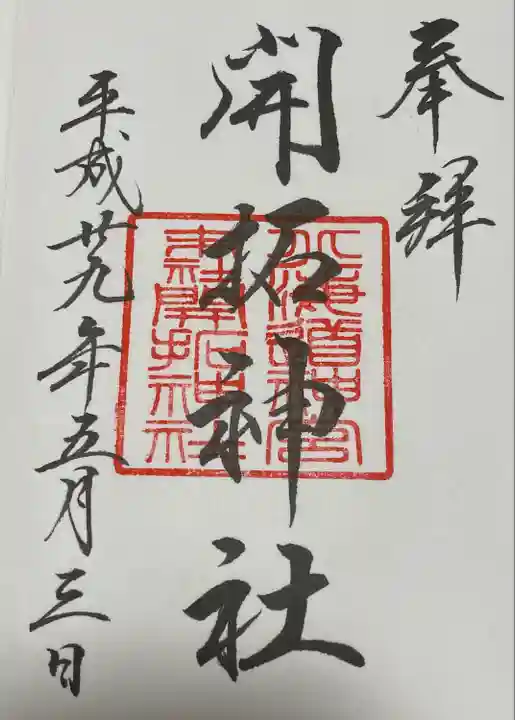 奉拝
開拓神社
北海道神宮
末社開拓神社
平成廿九年五月三日